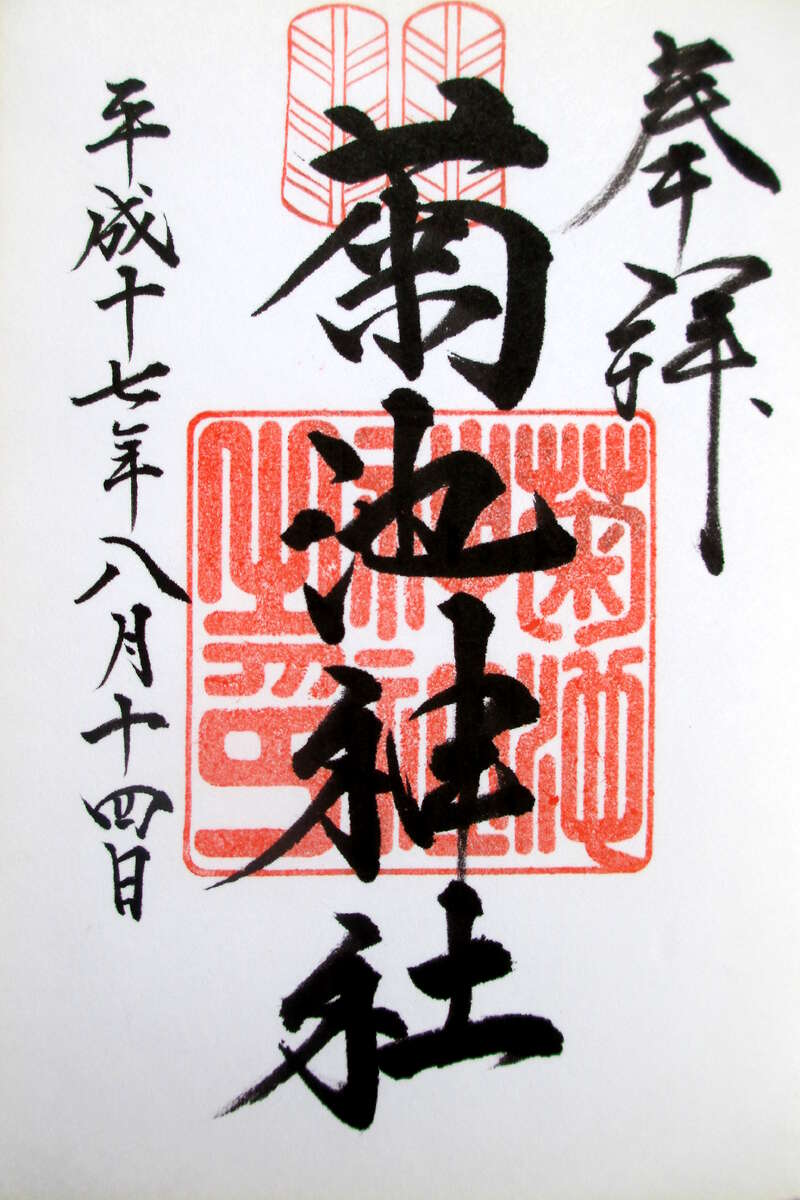 奉拝
菊池神社
菊池神社之印
平成十七年八月十四日